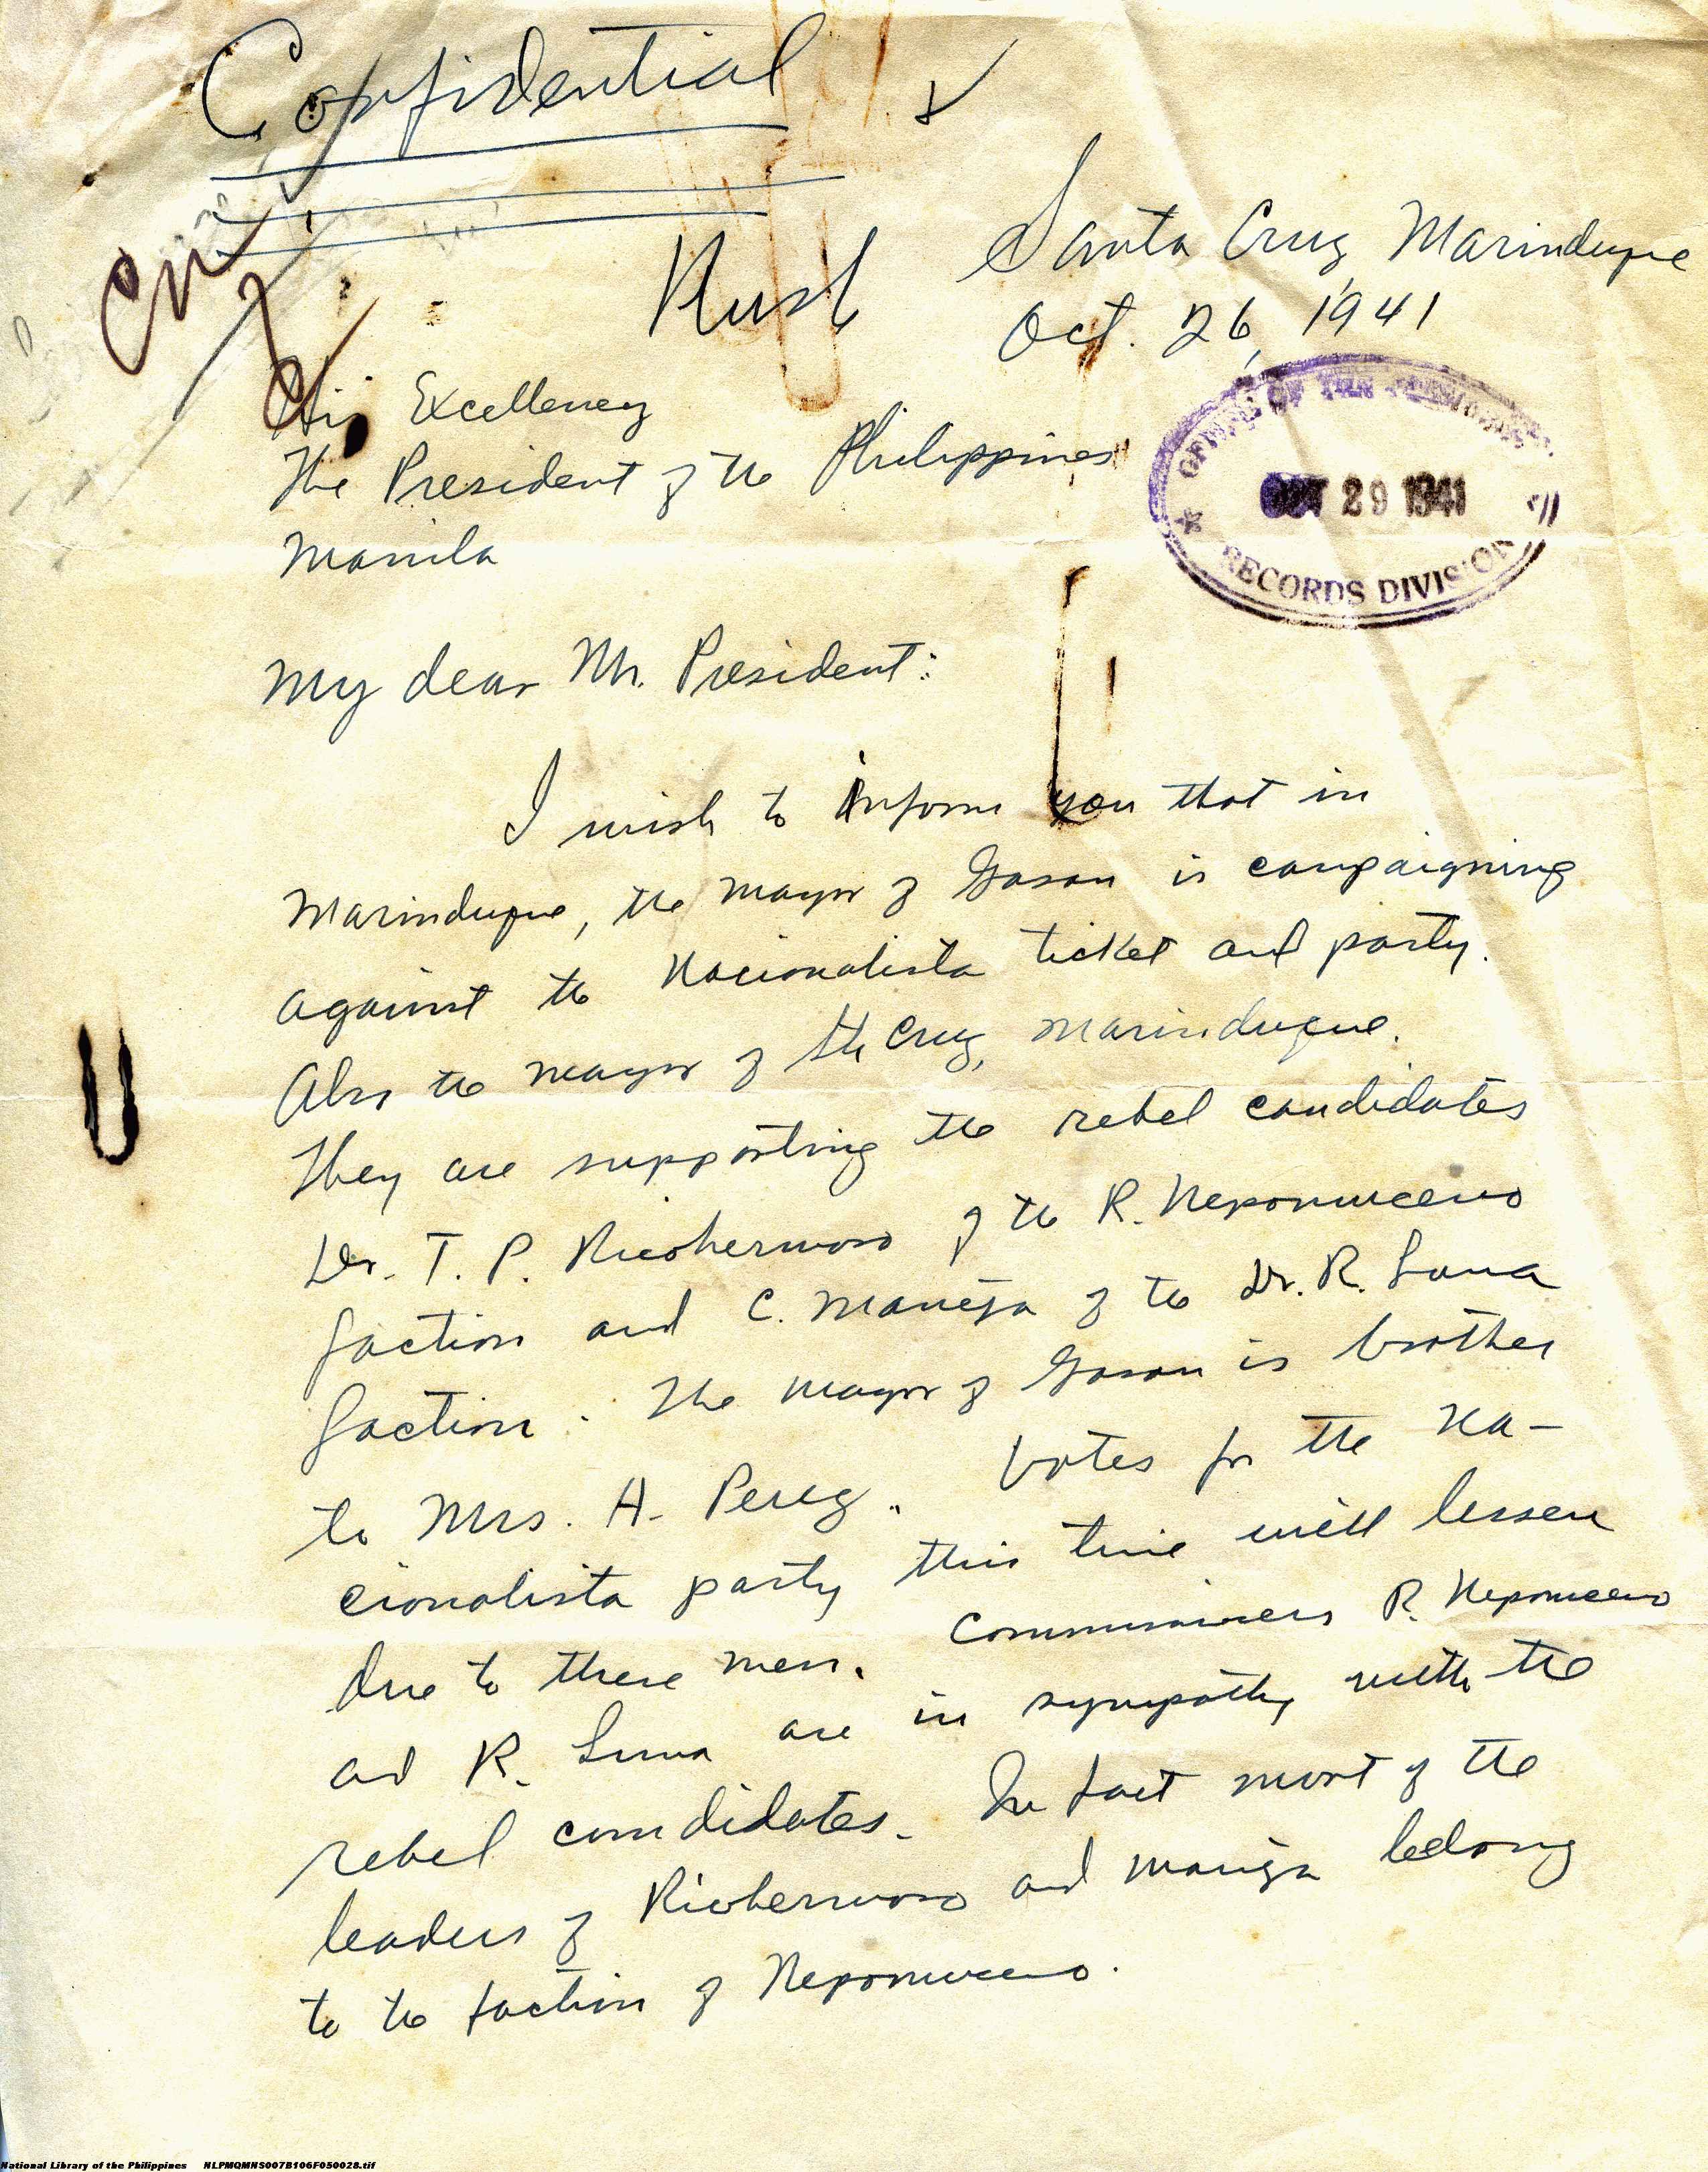 Confidential
Rush
Santa Cruz Marinduque
Oct. 26, 1941
His Excellency
The President of the Philippines
Manila
OFFICE OF THE
OCT 29 1941
RECORDS DIVISION
My dear Mr. President:
I wish to inform you that in
Marinduque, the mayor of Gasan is campaigning
against the Nacionalista ticket and party.
Also the mayor of Sta Cruz, Marinduque.
They are supporting the rebel candidates
Dr. T. P. Ricohermoso of the R. Nepomuceno
faction and C. Maneja of the Dr. R. Luna
faction. The mayor of Gasan is brother
to Mrs. A. Perez. Votes for the Na-
cionalista party this time will lessen
due to these men. Commissioners R. Nepomuceno
and R. Luna are in sympathy with the
rebel candidates. In fact most of the
leaders of Ricohermoso and Maneja belong
to the faction of Nepomuceno.
National Library of the Philippines NLPMQMNS007B106F050028.tif